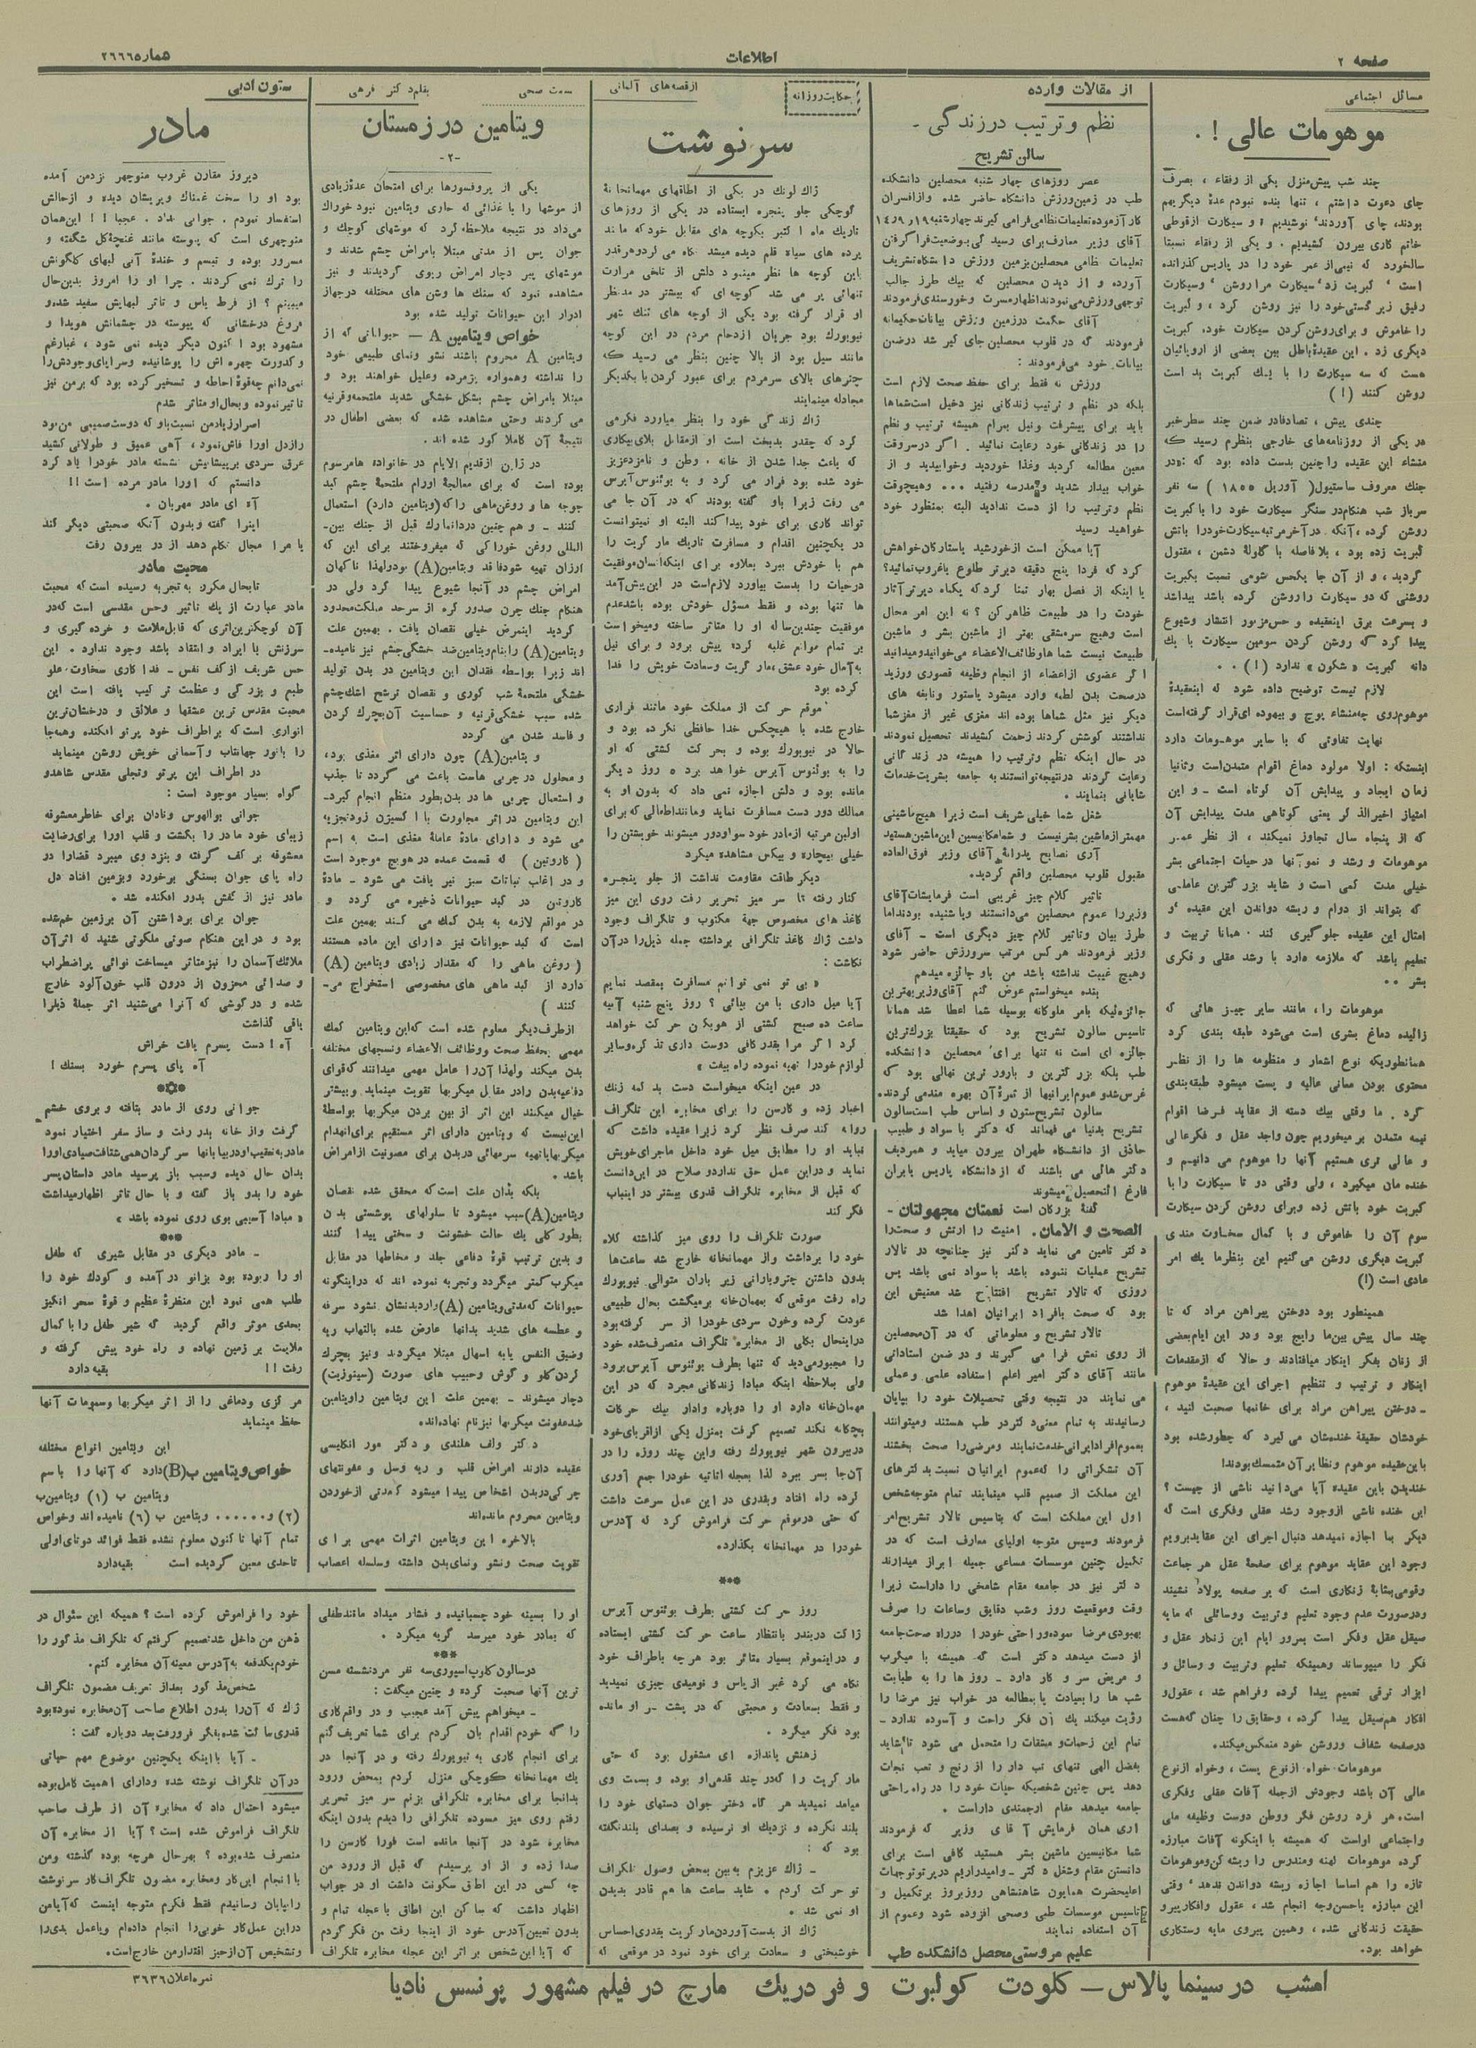 صفحه ۲
اطلاعات
شماره ۲۶۶۶
مسائل اجتماعی
موهومات عالی ! .
چند شب پیش منزل یکی از رفقاء ، بصرف
چای دعوت داشتم ، تنها بنده نبودم عدهٔ دیگر بهم
بودند، چای آوردند ٬ نوشیدیم و سیکارت ازقوطی
خاتم کاری بیرون کشیدیم . و یکی از رفقاء نسبتا
سالخورد که نیمی از عمر خود را در پاریس گذرانده
است ٬ کبریت زد٬ سیکارت مرا روشن ٬ وسیکارت
رفیق زیر گستی خود را نیز روشن کرد ، و کبریت
را خاموش و برای روشن کردن سیکارت خود، کبریت
دیگری زد . این عقیدهٔ باطل بین بعضی از اروپائیان
هست که سه سیکارت را با یك کبریت بد است
روشن کنند (!)
چندی پیش ، تصادفادر ضمن چند سطرخبر
در یکی از روزنامه‌های خارجی بنظرم رسید که
منشاء این عقیده را چنین بدست داده بود که : «در
جنك معروف ساستپول( آوریل ۱۸۵۵ ) سه نفر
سرباز شب هنگام در سنگر سیکارت خود را با کبریت
گبریت زده بود ، بلافاصله با گلولهٔ دشمن ، مقتول
دانه کبریت « شگون » ندارد (!) . .
لازم نیست توضیح داده شود که اینعقیدهٔ
موهوم روی چه منشاء پوچ و بیهوده ای قرار گرفته است
نهایت تفاوتی که با سایر موهومات دارد
اینستکه : اولا مولود دماغ اقوام متمدن است وثانیا
زمان ایجاد و پیدایش آن کوتاه است – و این
که از پنجاه سال تجاوز نمیکند ، از نظر عمر
موهومات و رشد و نمو آنها در حیات اجتماعی بشر
خیلی مدت کمی است و شاید بزرگترین عاملی
که بتواند از دوام و ریشه دواندن این عقیده ٬ و
امثال این عقیده جلو گیری کند ٬ همانا تربیت و
تعلیم باشد که ملازمه دارد با رشد عقلی و فکری
بشر . .
موهومات را ، مانند سایر چیز هائی که
زائیده دماغ بشری است می‌شود طبقه بندی کرد
همانطوریکه نوع اشعار و منظومه ها را از نظر
محتوی بودن معانی عالیه و پست میشود طبقه‌بندی
گرد . ما وقتی بیك دسته از عقاید فرضا اقوام
نیمه متمدن بر میخوریم چون واجد عقل و فکر عالی
و عالی تری هستیم آنها را موهوم می دانیم و
خنده مان میگیرد ، ولی وقتی دو تا سیکارت را با
کبریت خود باتش زده و برای روشن کردن سیکارت
سوم آن را خاموش و با کمال سخاوت مندی
کبریت دیگری روشن می‌کنیم این بنظرما یك امر
عادی است (!)
همینطور بود دوختن پیراهن مراد که تا
چند سال پیش بین‌ما رایج بود و در این ایام بعضی
از زنان بفکر اینکار میافتادند و حالا که ازمقدمات
اینکار و ترتیب و تنظیم اجرای این عقیدهٔ موهوم
– دوختن پیراهن مراد برای خانمها صحبت کنید ،
خودشان حقیقة خنده‌شان می گیرد که چطور شده بود
باین عقیده موهوم و نظایر آن متمسك بودند!
خندیدن باین عقیده آیا می دانید ناشی از چیست ؟
این خنده ناشی ازوجود رشد عقلی وفکری است که
دیگر بما اجازه نمیدهد دنبال اجرای این عقایدبرویم
وجود این عقاید موهوم برای صفحهٔ عقل هر جماعت
وقومی بمثابهٔ زنگاری است که بر صفحه پولاد نشیند
ودرصورت عدم وجود تعلیم و تربیت ووسائلی که مایه
صیقل عقل وفکر است بمرور ایام این زنگار عقل و
فکر را میپوساند وهمینکه تعلیم وتربیت و وسائل و
ابزار ترقی تعمیم پیدا کرده وفراهم شد ، عقول و
افکار هم صیقل پیدا کرده ، وحقایق را چنان که هست
در صفحه شفاف وروشن خود منعکس میکند.
موهومات خواه ازنوع پست ، وخواه از نوع
عالی آن باشد وجودش ازجمله آفات عقلی وفکری
است، هر فرد روشن فکر ووطن دوست وظیفه ملی
واجتماعی اواست که همیشه با اینگونه آفات مبارزه
کرده موهومات کهنه ومندرس را ریشه کن وموهومات
تازه را هم اساسا اجازه ریشه دواندن ندهد ٬ وقتی
این مبارزه باحسن وجه انجام شد ، عقول وافکار پیرو
حقیقت زندگانی شده ، وهمین پیروی مایه رستگاری
خواهد بود.
از مقالات وارده
نظم وترتیب درزندگی –
سالن تشریح
عصر روزهای چهار شنبه محصلین دانشکده
طب در زمین ورزش دانشگاه حاضر شده وازافسران
کار آزموده تعلیمات نظامی فرامی گیرند چهارشنبه ۱۹ر۹ر۱۴
آقای وزیر معارف برای رسید گی بوضعیت فرا گرفتن
تعلیمات نظامی محصلین بزمین ورزش دانشگاه تشریف
آورده و از دیدن محصلین که بیك طرز جالب
توجهی ورزش می‌نمودند اظهار مسرت و خورسندی فرمودند
آقای حکمت در زمین ورزش بیانات حکیمانه
فرمودند که در قلوب محصلین جای گیر شد درضمن
بیانات خود می‌فرمودند :
ورزش نه فقط برای حفظ صحت لازم است
بلکه در نظم و ترتیب زندگانی نیز دخیل است شماها
باید برای پیشرفت ونیل بمرام همیشه ترتیب و نظم
را در زندگانی خود رعایت نمائید . اگر در سروقت
معین مطالعه کردید وغذا خوردید وخوابیدید و از
خواب بیدار شدید و بمدرسه رفتید ... وهیچوقت
نظم وترتیب را از دست ندادید البته بمنظور خود
خواهید رسید
آیا ممکن است ازخورشید یاستارگان خواهش
کرد که فردا پنج دقیقه دیرتر طلوع یاغروب نمائید؟
یا اینکه از فصل بهار تمنا کرد که یکماه دیرتر آثار
خودت را در طبیعت ظاهر کن ؟ نه این امر محال
است وهیچ سرمشقی بهتر از ماشین بشر و ماشین
طبیعت نیست شما ها وظائف الاعضاء می‌خوانید ومیدانید
اگر عضوی ازاعضاء از انجام وظیفه قصوری ورزید
درصحت بدن لطمه وارد میشود پاستور ونابغه های
دیگر نیز مثل شماها بوده اند مغزی غیر از مغزشما
نداشتند کوشش کردند زحمت کشیدند تحصیل نمودند
در حال اینکه نظم وترتیب را همیشه در زند گانی
رعایت کردند درنتیجه توانستند به جامعه بشریت خدمات
شایانی بنمایند .
شغل شما خیلی شریف است زیرا هیچ ماشینی
مهمتر ازماشین بشر نیست و شما مکانیسین این ماشین هستید
آری نصایح پدرانهٔ آقای وزیر فوق‌العاده
مقبول قلوب محصلین واقع گردید.
تاثیر کلام چیز غریبی است فرمایشات آقای
وزیر را عموم محصلین می‌دانستند ویا شنیده بودند اما
طرز بیان وتاثیر کلام چیز دیگری است – آقای
وزیر فرمودند هر کس مرتب سر ورزش حاضر شود
وهیچ غیبت نداشته باشد من باو جائزه میدهم
بنده میخواستم عوض کنم آقای وزیر بهترین
جائزه ایکه بامر ملوکانه بوسیله شما اعطا شد همانا
تاسیس سالون تشریح بود که حقیقتا بزرك‌ترین
جائزه ای است نه تنها برای محصلین دانشکده
طب بلکه بزر گترین و بارور ترین نهالی بود که
غرس شد و عموم ایرانیها از ثمرهٔ آن بهره مند می گردند.
سالون تشریح ستون و اساس طب است سالون
تشریح بدنیا می فهماند که دکتر با سواد و طبیب
حاذق از دانشگاه طهران بیرون میاید و همردیف
دکتر هائی می باشند که از دانشگاه پاریس یا بران
فارغ التحصیل میشوند
گفتهٔ بزرگان است نعمتان مجهولتان -
الصحت و الامان. امنیت را ارتش و صحت را
دکتر تامین می نماید دکتر نیز چنانچه در تالار
تشریح عملیات ننموده باشد با سواد نمی باشد پس
روزی که تالار تشریح افتتاح شد معنیش این
بود که صحت بافراد ایرانیان اهدا شد
تالار تشریح و معلوماتی که در آن محصلین
از روی نعش فرا می گیرند و در ضمن استاداتی
مانند آقای دکتر امیر اعلم استفاده علمی و عملی
می نمایند در نتیجه وقتی تحصیلات خود را بپایان
رسانیدند به تمام معنی دکتر در طب هستند ومیتوانند
بعموم افراد ایرانی خدمت نمایند ومرضی را صحت بخشند
آن تشکراتی را که عموم ایرانیان نسبت بدکترهای
این مملکت از صمیم قلب مینمایند تمام متوجه شخص
اول این مملکت است که بتاسیس تالار تشریح امر
فرمودند وسپس متوجه اولیای معارف است که در
تکمیل چنین موسسات مساعی جمیله ابراز میدارند
دکتر نیز در جامعه مقام شامخی را داراست زیرا
وقت وموقعیت روز وشب دقایق وساعات را صرف
از دست میدهد دکتر است که همیشه با میکرب
و مریض سر و کار دارد – روز ها را به طبابت
شب ها را بعیادت یا بمطالعه در خواب نیز مرضا را
رؤیت میکند یك آن فکر راحت و آسوده ندارد –
تمام این زحمات و مشقات را متحمل می شود تا شاید
بفضل الهی تنهای تب دار را از رنج و تعب نجات
دهد پس چنین شخصیکه حیات خود را در راه راحتی
جامعه میدهد مقام ارجمندی داراست .
اری همان فرمایش آ قا ی وزیر که فرمودند
شما مکانیسین ماشین بشر هستید کافی است برای
دانستن مقام وشغل دکتر – وامیدواریم درپرتو توجهات
اعلیحضرت همایون شاهنشاهی روز بروز بر تکمیل و
تاسیس موسسات طبی وصحی افزوده شود و عموم از
آن استفاده نمایند
علیم مروستی محصل دانشکده طب
حکایت روزانه
از قصه‌های آلمانی
سرنوشت
ژاك لونك در یکی از اطاقهای مهمانخانهٔ
کوچکی جلو پنجره ایستاده در یکی از روزهای
تاریك ماه اکتبر بکوچه های مقابل خود که مانند
پرده های سیاه قلم دیده میشد نگاه می کرد و هرقدر
باین کوچه ها نظر مینمود دلش از تلخی مرارت
تنهائی پر می شد کوچه‌ای که بیشتر در مد نظر
او قرار گرفته بود یکی از کوچه های تنك شهر
نیویورك بود جریان ازدحام مردم در این کوچه
مانند سیل بود از بالا چنین بنظر می رسید که
چترهای بالای سر مردم برای عبور کردن با یکدیگر
مجادله مینمایند
ژاك زندگی خود را بنظر میاورد فکر می
کرد که چقدر بدبخت است او از مقابل بلای بیکاری
که باعث جدا شدن از خانه ، وطن و نامزد عزیز
خود شده بود فرار می کرد و به بوئنوس آیرس
می رفت زیرا باو گفته بودند که در آن جا می
تواند کاری برای خود پیدا کند البته او نمیتوانست
در یکچنین اقدام و مسافرت تاریك مار گریت را
هم با خودش ببرد بعلاوه برای اینکه انسان موفقیت
درحیات را بدست بیاورد لازم است در این پیش آمد
ها تنها بوده و فقط مسؤل خودش بوده باشد عدم
موفقیت چندین ساله او را متاثر ساخته ومیخواست
بر تمام موانع غلبه کرده پیش برود و برای نیل
به آمال خود عشق، مار گریت و سعادت خویش را فدا
کرده بود
موقع حرکت از مملکت خود مانند فراری
خارج شده با هیچکس خدا حافظی نکرده بود و
حالا در نیویورك بود و بحر کت کشتی که او
را به بوئنوس آیرس خواهد برد ۵ روز دیگر
مانده بود و دلش اجازه نمی داد که بدون او به
ممالك دور دست مسافرت نماید ومانند اطفالی که برای
اولین مرتبه از مادر خود سوا و دور میشوند خویشتن را
خیلی بیچاره و بیکس مشاهده میکرد
دیگر طاقت مقاومت نداشت از جلو پنجره
کنار رفته تا سر میز تحریر رفت روی این میز
کاغذ های مخصوص جههٔ مکتوب و تلگراف وجود
داشت ژاك کاغذ تلگرافی برداشته جمله ذیل را درآن
نگاشت :
« بی تو نمی توانم مسافرت بمقصد نمایم
آیا میل داری با من بیائی ؟ روز پنج شنبه آتیه
ساعت ده صبح کشتی از هوبکن حر کت خواهد
کرد اگر مرا بقدر کافی دوست داری تذ کره وسایر
لوازم خودرا تهیه نموده راه بیفت »
در عین اینکه میخواست دست بد کمه زنك
اخبار زده و کارسن را برای مخابره این تلگراف
روانه کند صرف نظر کرد زیرا عقیده داشت که
نباید او را مطابق میل خود داخل ماجرای خویش
نماید و دراین عمل حق ندارد و صلاح در این دانست
که قبل از مخابره تلگراف قدری بیشتر در اینباب
فکر کند
صورت تلگراف را روی میز گذاشته کلاه
خود را برداشت واز مهمانخانه خارج شد ساعت‌ها
بدون داشتن چتروبارانی زیر باران متوالی نیویورك
راه رفت موقعی که بمهمان خانه بر میگشت بحال طبیعی
عودت کرده وخون سردی خودرا از سر گرفته بود
دراینحال بکلی از مخابره تلگراف منصرف شده خود
را مجبور می‌دید که تنها بطرف بوئنوس آیرس برود
ولی بملاحظه اینکه مبادا زندگانی مجرد که در این
مهمان خانه دارد او را دوباره وادار بیك حرکات
بچگانه نکند تصمیم گرفت بمنزل یکی از اقربای خود
دربیرون شهر نیویورك رفته واین چند روزه را در
آن‌جا بسر ببرد لذا بعجله اثاثیه خودرا جمع آوری
کرده راه افتاد وبقدری در این عمل سرعت داشت
که حتی در موقع حرکت فراموش کرد که آدرس
خود را در مهمانخانه بگذارد.
***
روز حرکت کشتی بطرف بوئنوس آیرس
ژاك دربندر بانتظار ساعت حرکت کشتی ایستاده
و دراینموقع بسیار متاثر بود هرچه باطراف خود
نگاه می کرد غیر از یاس و نومیدی چیزی نمیدید
و فقط بسعادت و محبتی که در پشت سر او مانده
بود فکر میکرد .
ذهنش باندازه ای مشغول بود که حتی
مار گریت را که در چند قدمی او بوده و بسمت وی
میامد نمیدید هر گاه دختر جوان دستهای خود را
بلند نکرده و نزدیك او نرسیده و بصدای بلند نگفته
بود که :
– ژاك عزیزم به بین بمحض وصول تلگراف
تو حرکت کردم . شاید ساعت ها هم قادر بدیدن
او نمی شد .
ژاك از بدست آوردن مار گریت بقدری احساس
خوشبختی و سعادت برای خود نمود در موقعی که
سمت صحی
بقلم دکتر فرهی
ویتامین در زمستان
-۲-
یکی از پروفسورها برای امتحان عدهٔ زیادی
از موشها را با غذائی که حاوی ویتامین نبود خوراك
می‌داد در نتیجه ملاحظه کرد که موشهای کوچك و
جوان پس از مدتی مبتلا بامراض چشم شدند و
موشهای پیر دچار امراض ریوی گردیدند و نیز
مشاهده نمود که سنك ها وشن های مختلفه درجهاز
ادرار این حیوانات تولید شده بود
خواص ویتامین A – حیواناتی که از
ویتامین A محروم باشند نشو ونمای طبیعی خود
را نداشته وهمواره پژمرده وعلیل خواهند بود و
مبتلا بامراض چشم بشکل خشکی شدید ملتحمه وقرنیه
می گردند وحتی مشاهده شده که بعضی اطفال در
نتیجهٔ آن کاملا کور شده اند .
در ژاپن ازقدیم الایام در خانواده ها مرسوم
بوده است که برای معالجهٔ اورام ملتحمهٔ چشم کبد
جوجه ها و روغن ماهی را که (ویتامین دارد) استعمال
کنند – و هم چنین در دانمارك قبل از جنك بین-
المللی روغن خوراکی که میفروختند برای این که
ارزان تهیه شود فاقد ویتامین(A) بود لهذا ناگهان
امراض چشم در آنجا شیوع پیدا کرد ولی در
هنگام جنك چون صدور کره از سرحد مملکت محدود
گردید اینمرض خیلی نقصان یافت . بهمین علت
ویتامین(A) را بنام ویتامین ضد خشکی چشم نیز نامیده-
اند زیرا بواسطه فقدان این ویتامین در بدن تولید
خشکی ملتحمهٔ شب کوری و نقصان ترشح اشك چشم
شده سبب خشکی قرنیه و حساسیت آن بچرك کردن
و فاسد شدن می گردد
ویتامین(A) چون دارای اثر مغذی بود،
و محلول در چربی هاست باعث می گردد تا جذب
و استعمال چربی ها در بدن بطور منظم انجام گیرد-
این ویتامین در اثر مجاورت با اکسیژن زود تجزیه
می شود و دارای مادهٔ عاملهٔ مغذی است به اسم
( کاروتین ) که قسمت عمده در هویج موجود است
و در اغلب نباتات سبز نیز یافت می شود – مادهٔ
کاروتن در کبد حیوانات ذخیره می گردد و
در مواقع لازمه به بدن کمك می کنند بهمین علت
است که کبد حیوانات نیز دارای این ماده هستند
( روغن ماهی را که مقدار زیادی ویتامین (A)
دارد از کبد ماهی های مخصوصی استخراج می-
کنند )
ازطرف دیگر معلوم شده است که این ویتامین کمك
مهمی بحفظ صحت ووظائف الاعضاء ونسجهای مختلفه
بدن میکند ولهذا آن را عامل مهمی میدانند که قوای
دفاعیه بدن را در مقابل میکربها تقویت مینماید وبیشتر
خیال میکنند این اثر از بین بردن میکربها بواسطهٔ
این نیست که ویتامین دارای اثر مستقیم برای انهدام
میکربها یا تهیه سرمهائی در بدن برای مصونیت از امراض
باشد .
بلکه بدان علت است که محقق شده نقصان
ویتامین(A) سبب میشود تا سلولهای پوششی بدن
بطور کلی یك حالت خشونت و سختی پیدا کنند
و بدین ترتیب قوهٔ دفاعی جلد و مخاطها در مقابل
میکرب کمتر میگردد وتجربه نموده اند که در اینگونه
حیوانات که مدتی ویتامین (A) وارد بدنشان نشود سرفه
و عطسه های شدید بدانها عارض شده بالتهاب ریه
وضیق النفس یا به اسهال مبتلا میگردند ونیز بچرك
کردن گلو و گوش وجیب های صورت (سینوزیت)
دچار میشوند – بهمین علت این ویتامین را ویتامین
ضد عفونت میکربها نیز نام نهاده‌اند.
دکتر ولف هلندی و دکتر مور انگلیسی
عقیده دارند امراض قلب و ریه وسل و عفونتهای
چرکی دربدن اشخاص پیدا میشود که مدتی از خوردن
ویتامین محروم مانده‌اند
بالاخره این ویتامین اثرات مهمی برای
تقویت صحت ونشو ونمای بدن داشته وسلسله اعصاب
مرکزی ودماغی را از اثر میکربها وسمومات آنها
حفظ مینماید
این ویتامین انواع مختلفه
خواص ویتامین ب(B) دارد که آنها را باسم
ویتامین ب (۱) ویتامین ب
(۲) و...... ویتامین ب (۶) نامیده اند وخواص
تمام آنها تا کنون معلوم نشده فقط فوائد دو تای اولی
تاحدی معین گردیده است بقیه دارد
ستون ادبی
مادر
دیروز مقارن غروب منوچهر نزدمن آمده
بود او را سخت غمناك وپریشان دیده و از حالش
استفسار نمودم . جوابی نداد . عجبا !! این همان
منوچهری است که پیوسته مانند غنچهٔ گل شگفته و
مسرور بوده و تبسم و خندهٔ آنی لبهای گلگونش
را ترك نمی کردند . چرا او را امروز بدین حال
میبینم ؟ از فرط یاس و تاثر لبهایش سفید شده و
فروغ درخشانی که پیوسته در چشمانش هویدا و
مشهود بود اکنون دیگر دیده نمی شود ، غبار غم
و کدورت چهره اش را پوشانیده وسراپای وجودش را
نمی‌دانم چه قوهٔ احاطه و تسخیر کرده بود که بر من نیز
تاثیر نموده و بحال او متاثر شدم
اصرار زیاد من نسبت باو که دوست صمیمی من بود
رازدل اورا فاش نمود ، آهی عمیق و طولانی کشید
عرق سردی بر پیشانیش نشسته مادر خودرا یاد کرد
دانستم که اورا مادر مرده است !!
آه ای مادر مهربان .
اینرا گفته وبدون آنکه صحبتی دیگر کند
یا مرا مجال تکلم دهد از در بیرون رفت
محبت مادر
تابحال مکرر به تجربه رسیده است که محبت
مادر عبارت از یك تاثیر وحس مقدسی است که در
آن کوچکترین اثری که قابل ملامت و خرده گیری و
سرزنش یا ایراد و انتقاد باشد وجود ندارد . این
حس شریف از کف نفس – فداکاری سخاوت علو
طبع و بزرگی و عظمت ترکیب یافته است این
محبت مقدس ترین عشقها و علائق و درخشان‌ترین
انواری است که بر اطراف خود پرتو افکنده وهمه جا
را بانور جهانتاب و آسمانی خویش روشن مینماید
در اطراف این پرتو وتجلی مقدس شاهد و
گواه بسیار موجود است :
جوانی بوالهوس ونادان برای خاطر معشوقه
زیبای خود مادر را بکشت و قلب اورا برای رضایت
معشوقه بر کف گرفته و بنزد وی میبرد قضارا در
راه پای جوان بسنگی برخورد و بزمین افتاد دل
مادر نیز از کفش بدور افکنده شد .
جوان برای برداشتن آن برزمین خم شده
بود و در این هنگام صوتی ملکوتی شنید که اثر آن
ملائك آسمان را نیز متاثر میساخت نوائی پر اضطراب
و صدائی محزون از درون قلب خون آلود خارج
شده و در گوشی که آنرا می‌شنید اثر جملهٔ ذیلرا
باقی گذاشت
آه ! دست پسرم یافت خراش
آه پای پسرم خورد بسنك !
***
جوانی روی از مادر بتافته و بروی خشم
گرفت واز خانه بدر رفت و ساز سفر اختیار نمود
مادر به تعقیب اودر بیابانها سر گردان همی‌شتافت صیادی اورا
بدان حال دیده وسبب باز پرسید مادر داستان پسر
خود را بدو باز گفته و با حال تاثر اظهار میداشت
« مبادا آسیبی بوی روی نموده باشد »
***
– مادر دیگری در مقابل شیری که طفل
او را ربوده بود بزانو در آمده و کودك خود را
طلب همی نمود این منظرهٔ عظیم و قوهٔ سحر انگیز
بحدی موثر واقع گردید که شیر طفل را با کمال
ملایمت بر زمین نهاده و راه خود پیش گرفته و
رفت !! بقیه دارد
او را بسینه خود چسبانیده و فشار میداد مانند طفلی
که بمادر خود میرسد گریه میکرد .
***
درسالون کلوپ اسپوری سه نفر مرد نشسته مسن
ترین آنها صحبت کرده و چنین میگفت :
– میخواهم پیش آمد عجیب و در واقع کاری
را که خودم اقدام بان کردم برای شما تعریف کنم
برای انجام کاری به نیویورك رفته و در آنجا در
یك مهمانخانه کوچکی منزل کردم بمحض ورود
بدانجا برای مخابره تلگرافی بزنم سر میز تحریر
رفتم روی میز مسوده تلگرافی را دیدم بدون اینکه
مخابره شود در آنجا مانده است فورا کارسن را
صدا زده و از او پرسیدم که قبل از ورود من
چه کسی در این اطاق سکونت داشت او در جواب
اظهار داشت که ساکن این اطاق با عجله تمام و
بدون تعیین آدرس خود از اینجا رفت من فکر کردم
که آیا این شخص بر اثر این عجله مخابره تلگراف
خود را فراموش کرده است ؟ همینکه این سئوال در
ذهن من داخل شد تصمیم گرفتم که تلگراف مذکور را
خودم یکدفعه به آدرس معینه آن مخابره کنم.
شخص مذکور بعد از تعریف مضمون تلگراف
ژاك که آن را بدون اطلاع صاحب آن مخابره نموده بود
قدری ساکت شده بفکر فرورفت بعد دوباره گفت :
– آیا با اینکه یکچنین موضوع مهم حیاتی
در آن تلگراف نوشته شده ودارای اهمیت کامل بوده
میشود احتمال داد که مخابره آن از طرف صاحب
تلگراف فراموش شده است ؟ آیا از مخابره آن
منصرف شده بود ؟ بهرحال هرچه بوده گذشته ومن
با انجام این کار ومخابره مضون تلگراف کار سرنوشت
را بپایان رسانیدم فقط فکرم متوجه اینست که آیا من
دراین عمل کار خوبی را انجام داده‌ام ویا عمل بدی را
وتشخیص آن از حیز اقتدار من خارج است.
نمره اعلان ۳۶۳۶
امشب در سینما پالاس – کلودت کولبرت و فردریك مارچ در فیلم مشهور پرنسس نادیا